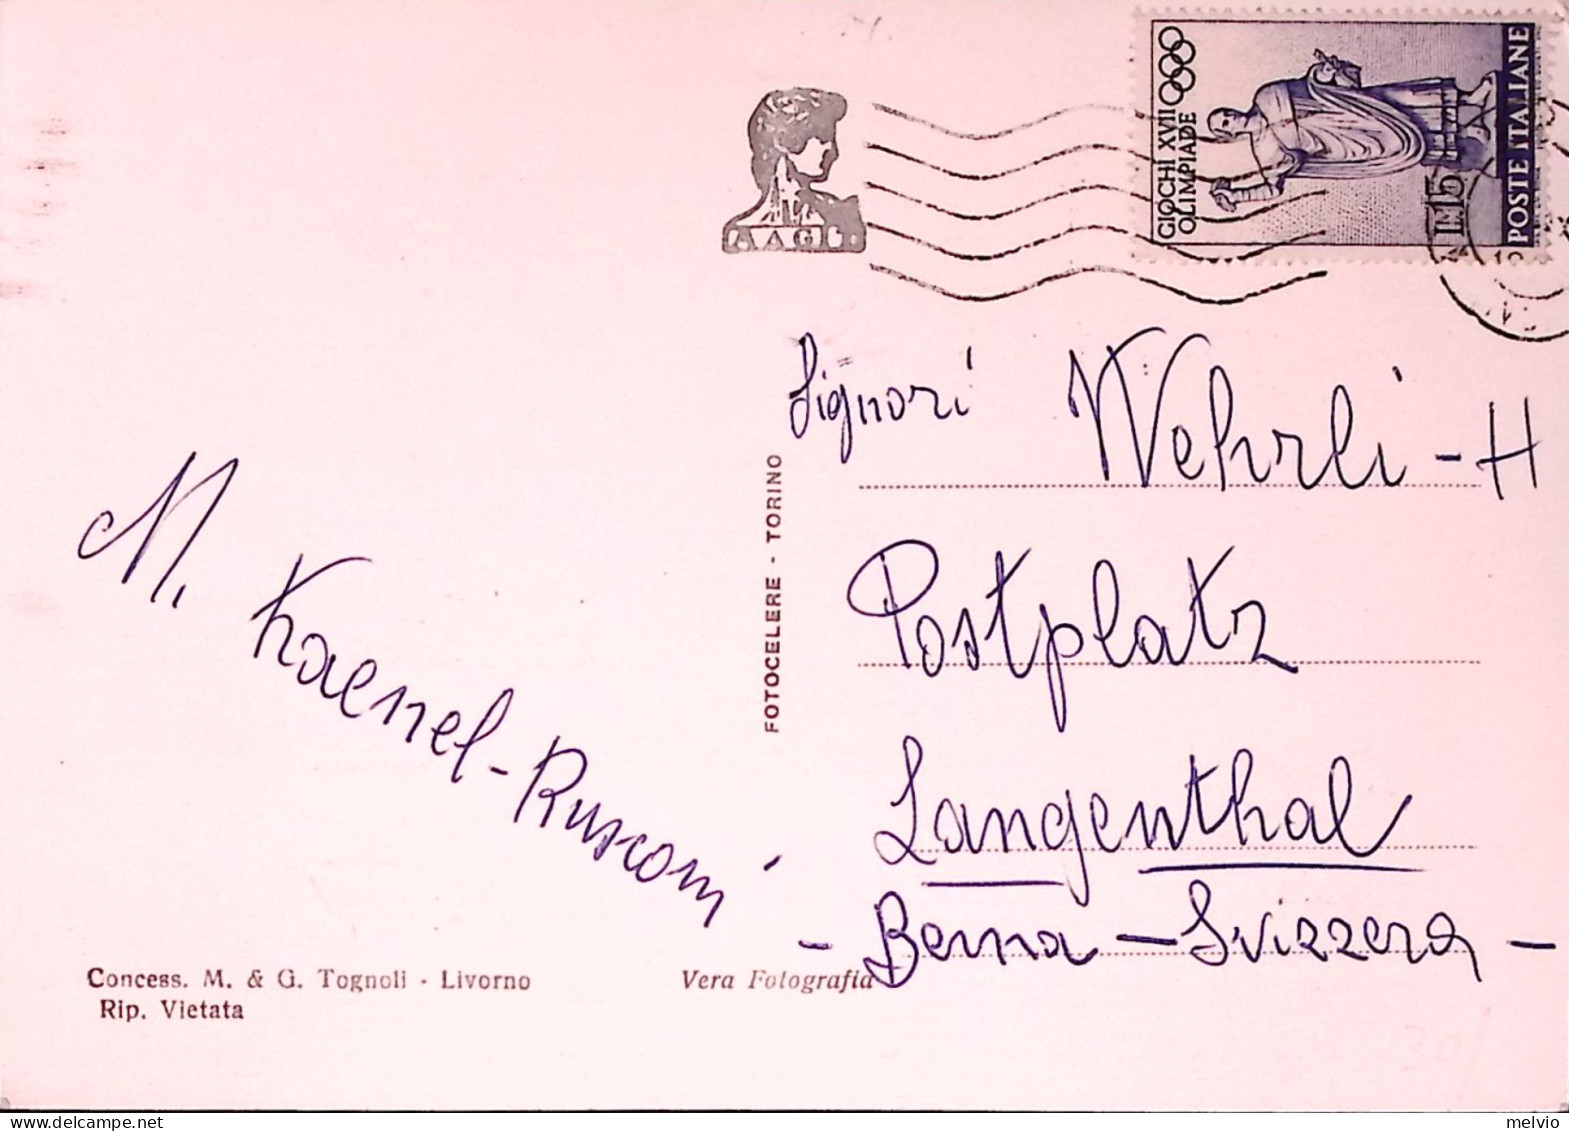 GIOCHI XVII
OLIMPIADE
L. 15
POSTE ITALIANE
Signori Wehrli - H
Postplatz
Langenthal
- Berna - Svizzera -
M. Kaenel-Rusconi
FOTOCELERE - TORINO
Concess. M. & G. Tognoli - Livorno
Rip. Vietata
Vera Fotografia
melvio